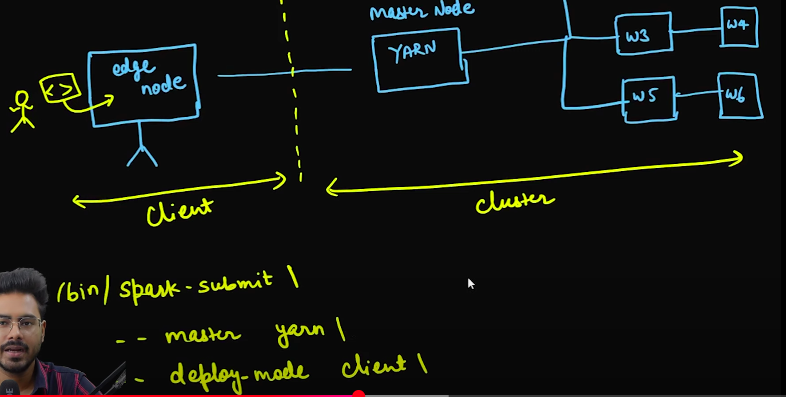 master Node
YARN
edge
node
<>
W3
W4
W5
W6
client
cluster
/bin/spark-submit \
-- master yarn \
- deploy-mode client \